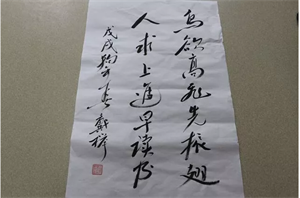 鸟欲高飞先振翅
人求上進早读书
戊戌